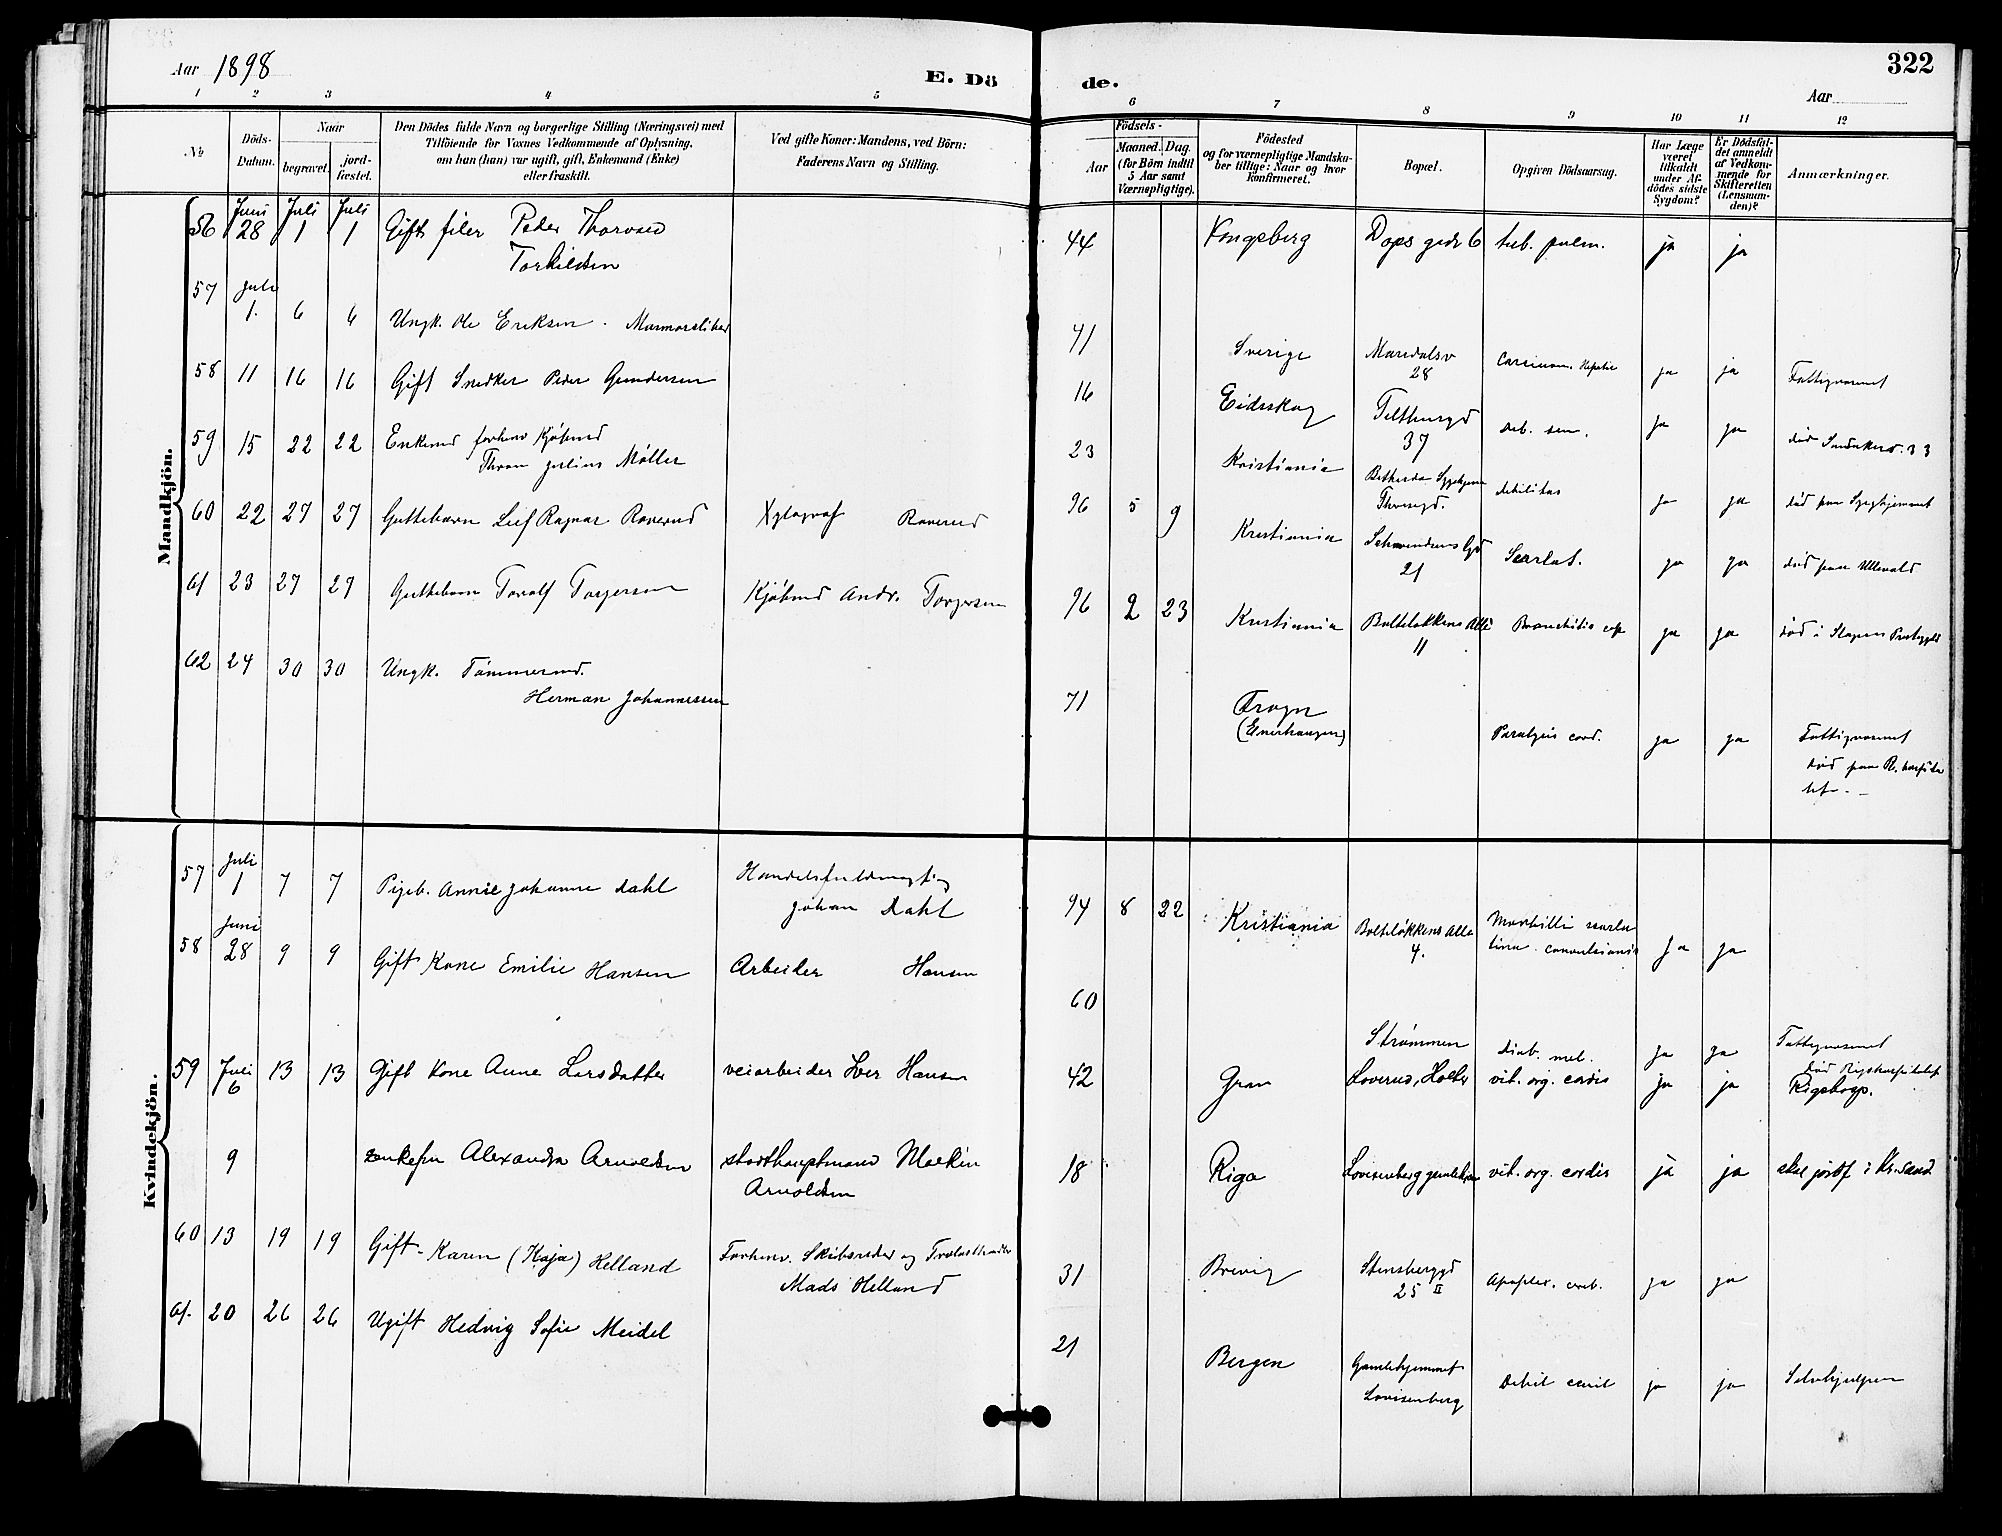 Aar 1898
E. Dö
de.
322
Aar
1 2 3 4 5 6 7 8 9 10 11 12
No
Döds-
Datum.
Naar
begravet.
jord-
fæstet.
Den Dödes fulde Navn og borgerlige Stilling (Næringsvei) med
Tilföiende for Voxnes Vedkommende af Oplysning,
om han (hun) var ugift, gift, Enkemand (Enke)
eller fraskilt.
Ved gifte Koner: Mandens, ved Börn:
Faderens Navn og Stilling.
Födsels-
Aar
Maaned. Dag.
(for Börn indtil
5 Aar samt
Værnepligtige).
Födested
og for værnepligtige Mandska-
ber tillige: Naar og hvor
konfirmeret.
Bopæl.
Opgiven Dödsaarsag.
Har Læge
været
tilkaldt
under Af-
dödes sidste
Sygdom?
Er Dödsfal-
det anmeldt
af Vedkom-
mende for
Skifteretten
(Lensman-
den)?
Anmærkninger.
Mandkjön.
56 Juni 28 Juli 1 Juli 1 Gift filer Peder Thorvald
Torkildsen
44 Kongsberg Dops gade 6 tub. pulm. ja ja
57 Juli 1. 6 6 Ungk. Ole Eriksen. Marmorsliber
41 Sverige Maridalsv 28 Carcinom. Hepatis ja ja Fattigvæsenet
58 11 16 16 Gift Snedker Peder Gundersen
16 Eidsskog Telthusgd 37 Deb. sen. ja ja död Sandakerv. 33
59 15 22 22 Enkemd forhenv Kjöbmd
Thron Julius Möller
23 Kristiania Bethesda Sygehjem
Theresegd. debilitas ja ja död paa Sygehjemmet
60 22 27 27 Guttebarn Leif Ragnar Raverud Xylograf Raverud
96 5 9 Kristiania Schwendens Gd
21 Scarlat. ja ja död paa Ullevold
61 23 27 27 Guttebarn Torolf Torgersen Kjöbmd Andr. Torgersen
96 2 23 Kristiania Bolteløkkens Allé
11 Bronchitis cap ja ja död i
62 24 30 30 Ungk. Tömmermd.
Herman Johannessen
71 Frogn
(Enerhaugen) Paralysis cord. ja ja Fattigvæsenet
död paa R. hospita
let. -
Kvindekjön.
57 Juli 1 7 7 Pigeb. Annie Johanne Dahl Handelsfuldmægtig
Johan Dahl
94 8 22 Kristiania Bolteløkkens Alle
4. Morbilli scarla
tina. convulsionis ja ja
58 Juni 28 9 9 Gift Kone Emilie Hansen Arbeider Hansen
60 Strömmen Diab. mel. ja ja Fattigvæsenet
död Rigshospitalet
59 Juli 6 13 13 Gift Kone Anne Larsdatter veiarbeider Iver Hansen
42 Gran Loverud, Holter vit. org. cordis ja ja Rigshosp.
9 Enkefru Alexandra Arnoldsen stadthauptmand Markin
Arnoldsen
18 Riga Lovisenberg gamlehjem vit. org. cordis ja ja ikke jordf i Kr.sand
60 13 19 19 Gift Karen (Kaja) Helland Forhenv. Skibsreder og Trælasthandler
Mads Helland
31 Brevig Stensberggd
25 II Apoplex. cereb. ja ja
61. 20 26 26 Ugift Hedvig Sofie Meidel
21 Bergen Gamlehjemmet
Lovisenberg Debil senil ja ja Selvhjulpen